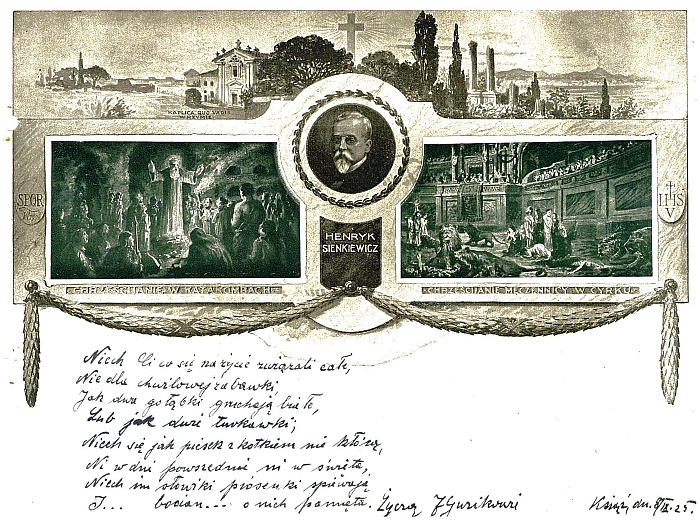 KAPLICA QUO VADIS
W RZYMIE
SPQR
IHS
V
HENRYK
SIENKIEWICZ
CHRZEŚCIANIE W KATAKOMBACH
CHRZEŚCIANIE MĘCZENNICY W CYRKU
Niech Ci co się na życie związali całe,
Nie dla chwilowej zabawki,
Jak dwa gołąbki gruchają białe,
Lub jak dwie turkawki;
Niech się jak piesek z kotkiem nie kłócą,
Ni w dni powszednie ni w święta,
Niech im słowiki piosenki śpiewają
I... bocian... o nich pamięta. Życzą
dn.
25.